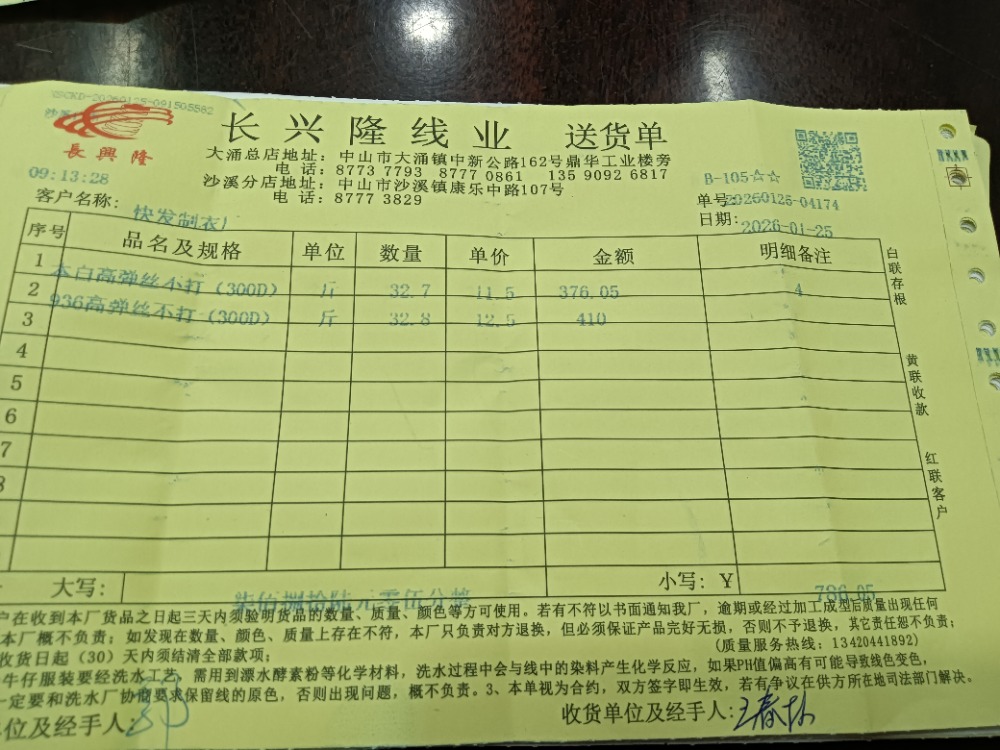 XSCKD-20260125-091505582
長興隆
长兴隆线业 送货单
大涌总店地址：中山市大涌镇中新公路162号鼎华工业楼旁
电话：8773 7793 8777 0861 135 9092 6817
沙溪分店地址：中山市沙溪镇康乐中路107号
电话：8777 3829
09:13:28
B-105☆☆
单号：20260125-04174
客户名称：快发制衣厂
日期：2026-01-25
序号 品名及规格 单位 数量 单价 金额 明细备注
1 本白高弹丝不打（300D） 斤 32.7 11.5 376.05 4
2 936高弹丝不打（300D） 斤 32.8 12.5 410
3
4
5
6
7
8
白联存根
黄联收款
红联客户
大写： 柒佰捌拾陆元零伍分 小写：￥ 786.05
户在收到本厂货品之日起三天内须验明货品的数量、质量、颜色等方可使用。若有不符以书面通知我厂，逾期或经过加工成型后质量出现任何
本厂概不负责；如发现在数量、颜色、质量上存在不符，本厂只负责对方退换，但必须保证产品完好无损，否则不予退换，其它责任恕不负责；
收货日起（30）天内须结清全部款项；
(质量服务热线：13420441892)
牛仔服装要经洗水工艺，需用到漂水酵素粉等化学材料，洗水过程中会与线中的染料产生化学反应，如果PH值偏高有可能导致线色变色，
一定要和洗水厂协商要求保留线的原色，否则出现问题，概不负责。3、本单视为合约，双方签字即生效，若有争议在供方所在地司法部门解决。
单位及经手人： 收货单位及经手人：